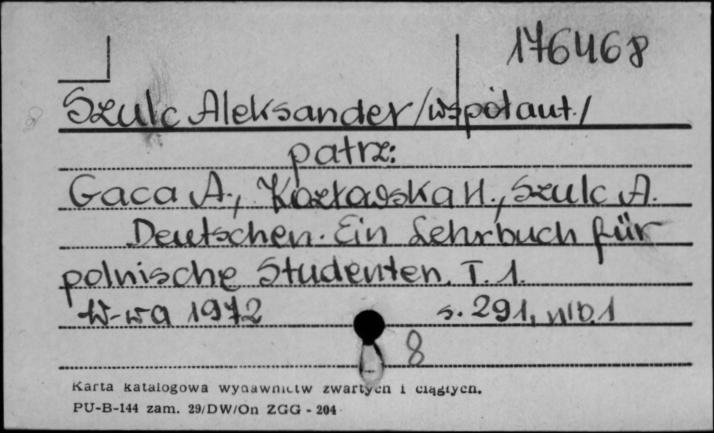 176468
Szulc Aleksander /współaut./
patrz:
Gaca A., Kozłowska H., Szulc A.
Deutschen. Ein Lehrbuch für
polnische Studenten. T. 1.
W-wa 1972 s. 291, nlb. 1
8
Karta katalogowa wydawnictw zwartych i ciągłych.
PU-B-144 zam. 29/DW/On ZGG - 204